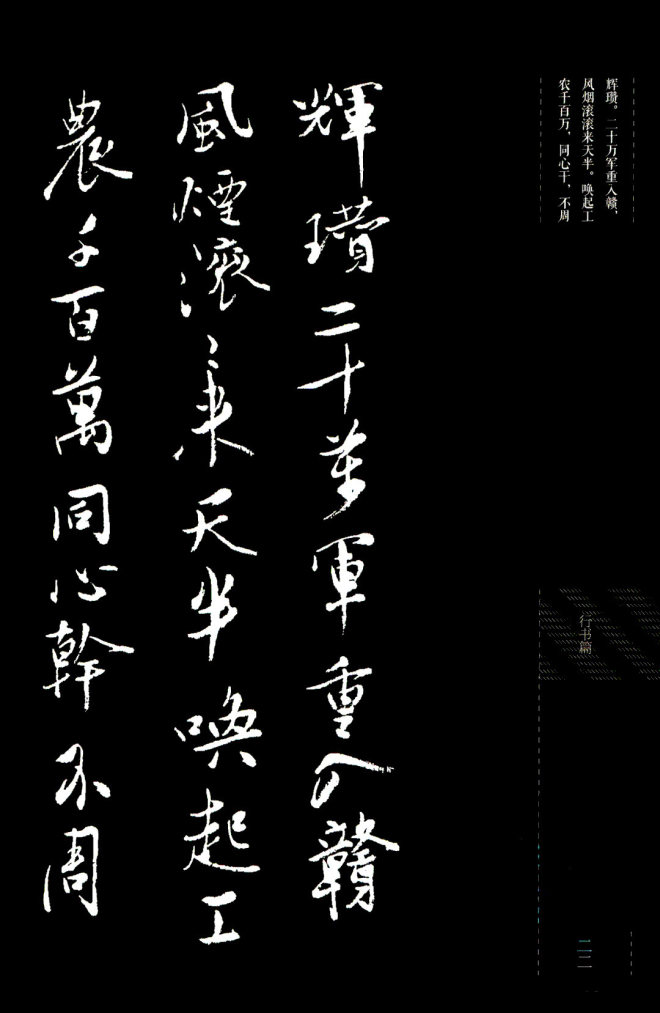 辉瓒。二十万军重入赣,
风烟滚滚来天半。唤起工
农千百万,同心干,不周
輝瓚二十萬軍重入贛
風煙滾〻来天半喚起工
農千百萬同心幹不周
行书篇
二二